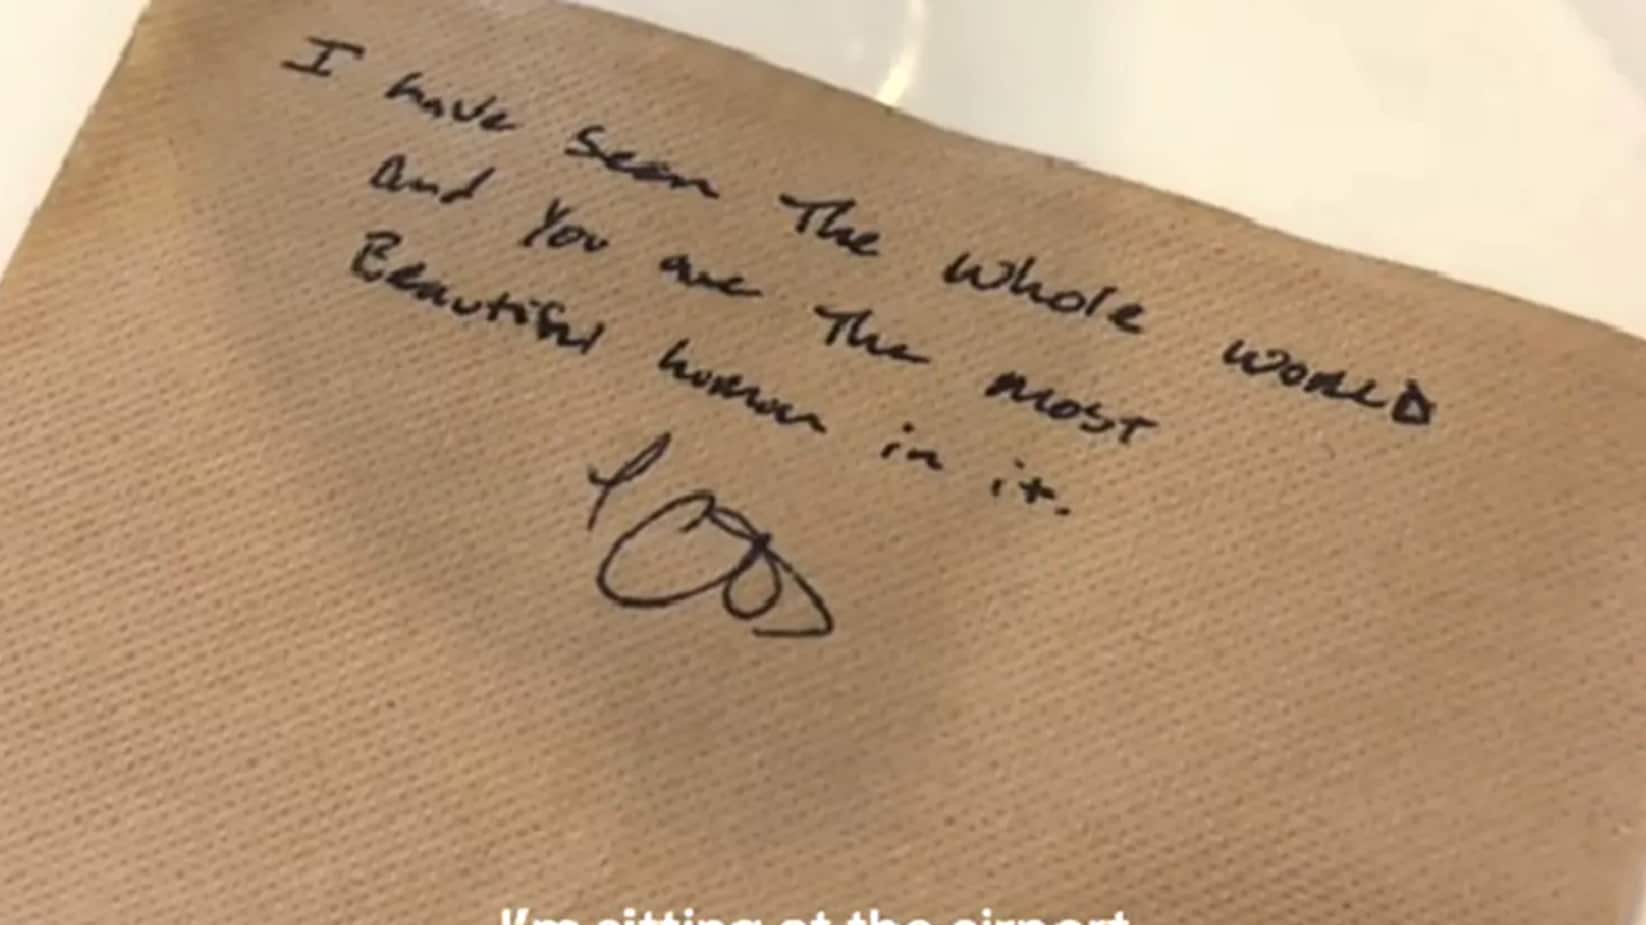 I have seen The whole WORLD
and You are The most
Beautiful human in it.
I'm sitting at the airport